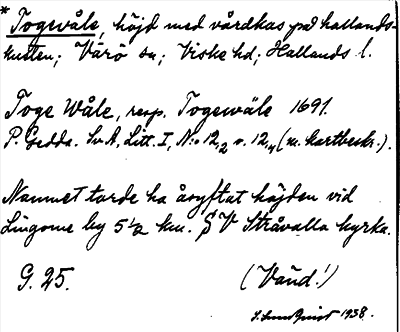 * Togevåle, höjd med vårdkas på hallands-
kusten; Värö sn; Viske hd; Hallands l.
Toge Wåle, resp. Togewåle 1691.
P. Gedda. Sv. A, Litt. I, N:o 12,2 o. 12,4 (m. kartbeskr.).
Namnet torde ha åsyftat höjden vid
Lingome by 5 1/2 km. SV Stråvalla kyrka.
G. 25. (Vänd!)
1938.